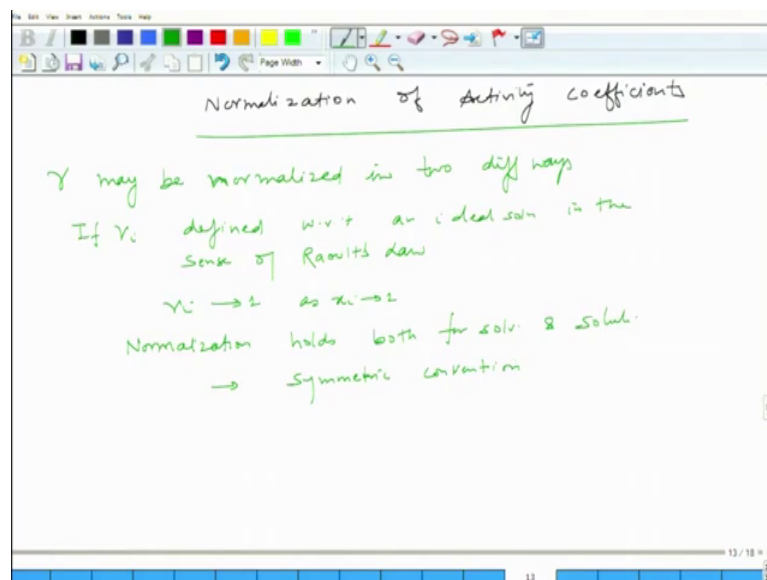 File Edit View Insert Actions Tools Help
B I
Page Width
Normalization of Activity coefficients
γ may be normalized in two diff ways
If γi defined w.r.t an ideal soln in the
sense of Raoult's Law
γi → 1 as xi → 1
Normalzation holds both for solv. & solute.
→ symmetric convention
13 / 18
13